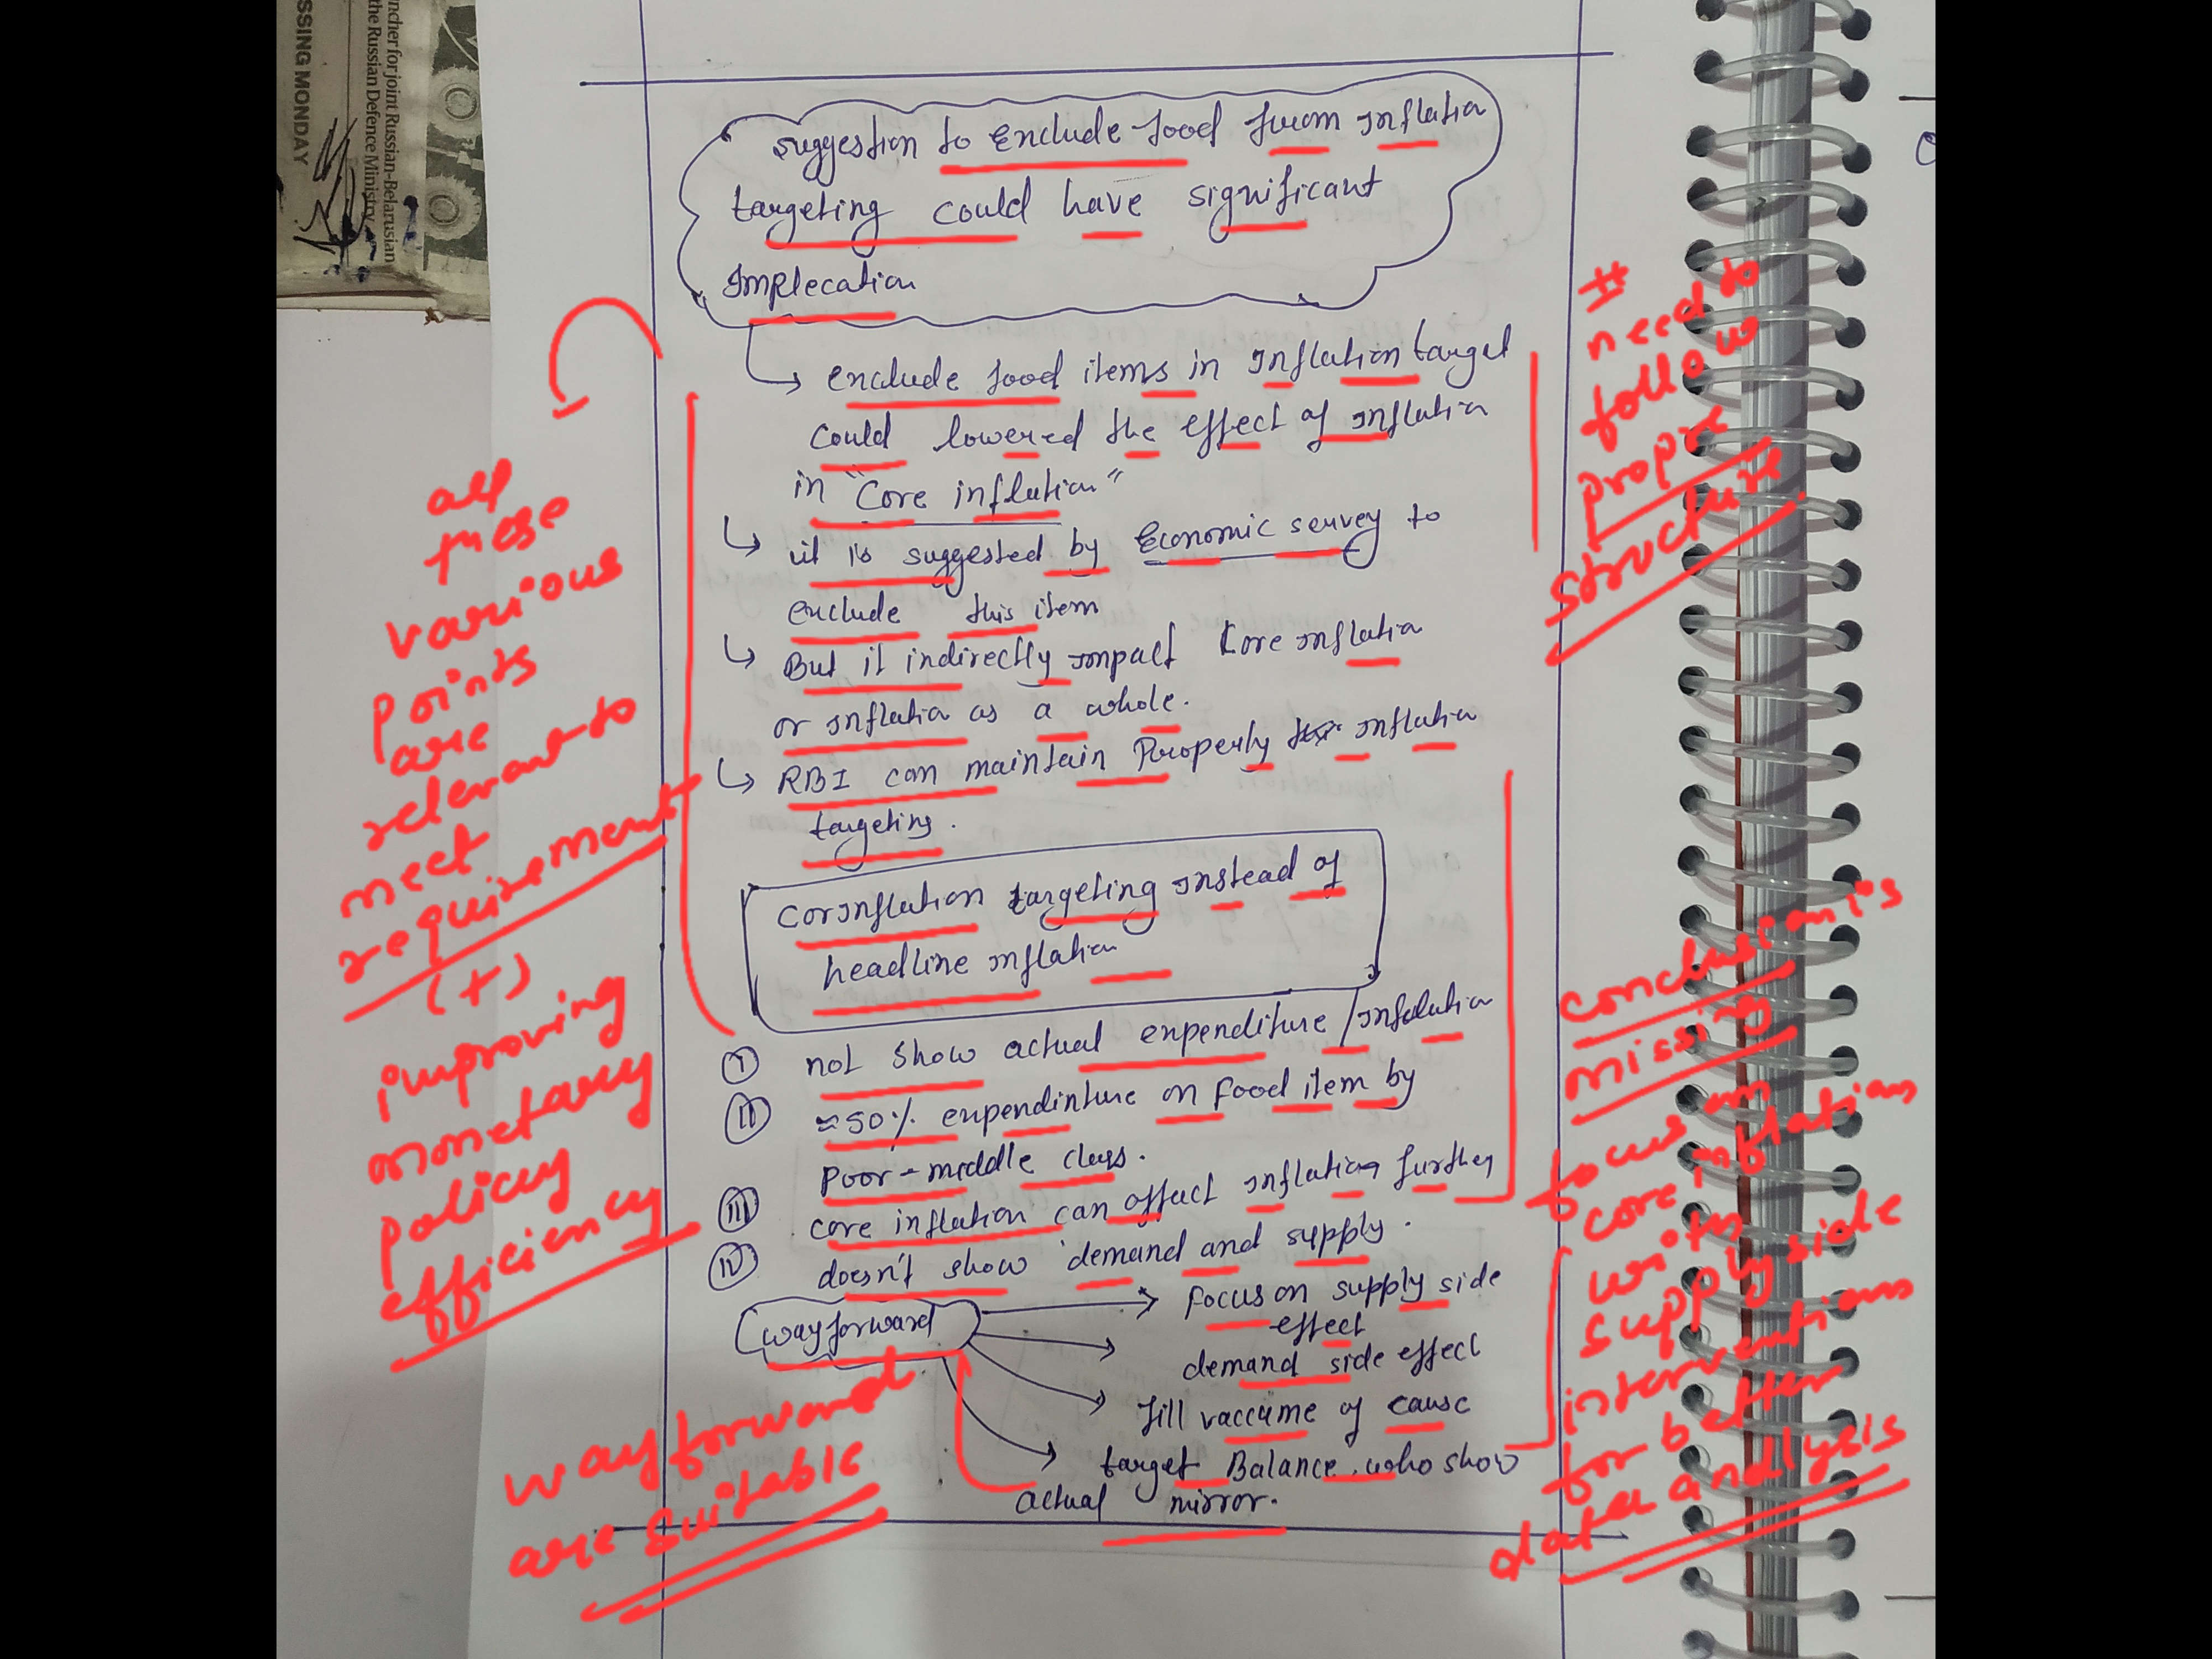 SSING MONDAY
ncher for joint Russian-Belarusian
the Russian Defence Ministry
suggestion to Enclude food from Inflation
targeting could have significant
Implecation
enclude food items in Inflation target
could lowered the effect of Inflation
in "Core inflation"
it is suggested by Economic servey to
enclude this item
But it indirectly impact Core inflation
or inflation as a whole.
RBI can maintain Properly inflation
targeting.
Corinflation targeting instead of
headline inflation
I not show actual enpenditure / Infelation
II ≈50% enpendinture on Food item by
Poor-middle class.
III core inflation can affect inflation further
IV doesn't show demand and supply.
wayforward
Focus on supply side
effect
demand side effect
fill vaccume of cause
target Balance who show
actual mirror.
all
these
various
points
are
relevant to
meet
requirement
(+)
improving
monetary
policy
efficiency
wayforward
are suitable
#
need to
follow
propre
structure.
conclusion is
missing
focus on
core inflation
with
supply side
interventions
for better
data analysis